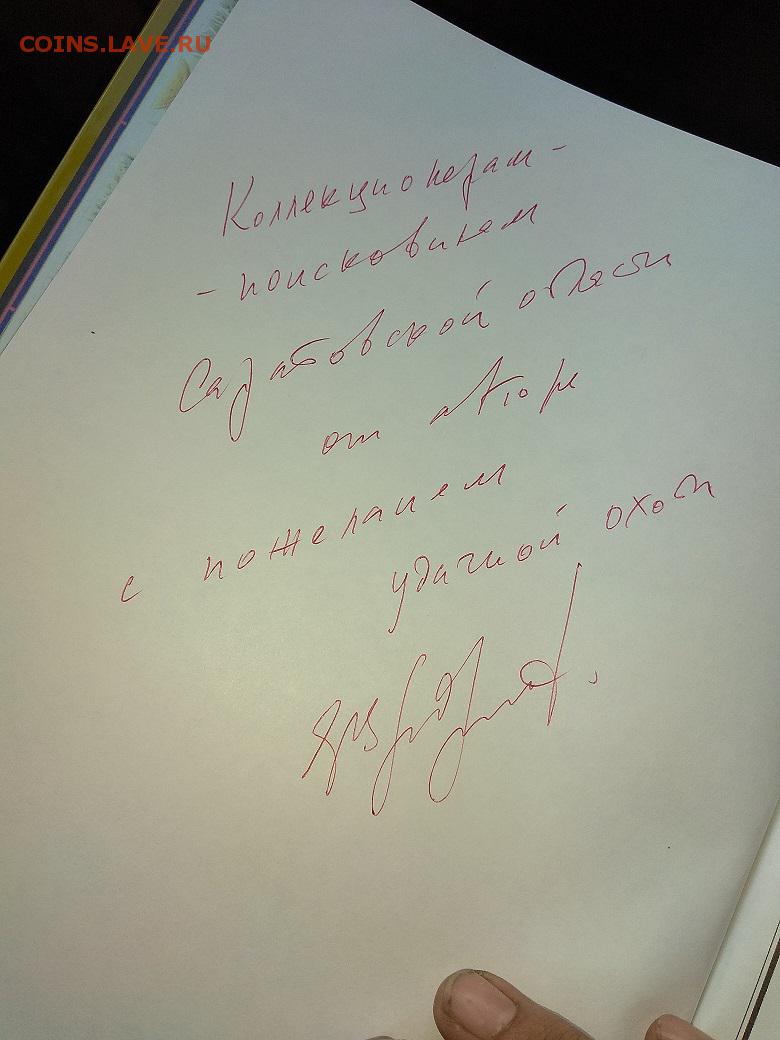 COINS.LAVE.RU
Коллекционерам -
- поисковикам
Саратовской области
от автора
с пожеланием
удачной охоты